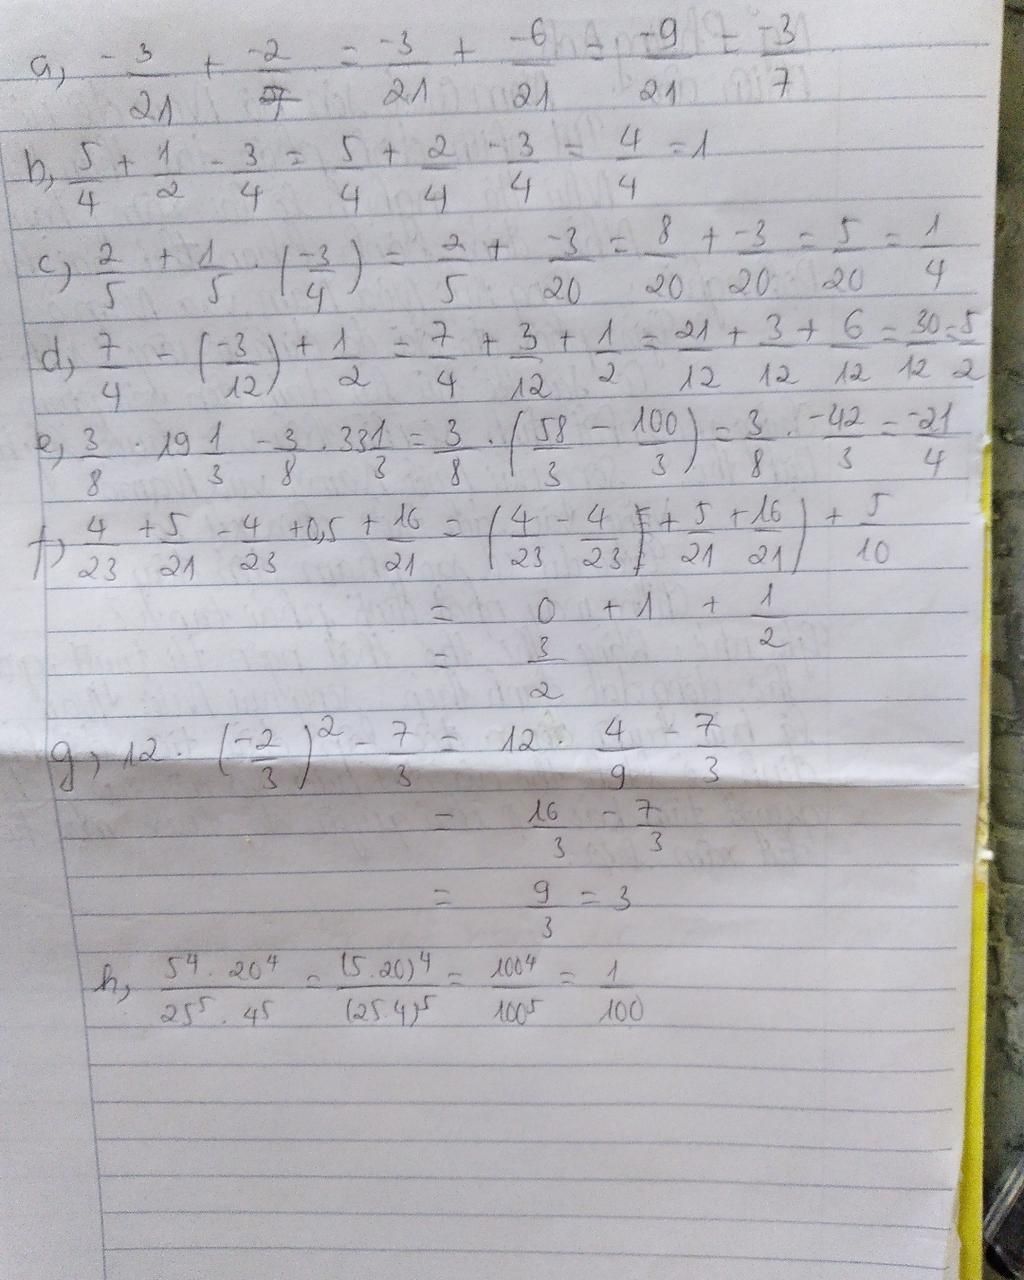 a, -3/21 + -2/7 = -3/21 + -6/21 = -9/21 = -3/7
b, 5/4 + 1/2 - 3/4 = 5/4 + 2/4 - 3/4 = 4/4 = 1
c, 2/5 + 1/5 . (-3/4) = 2/5 + -3/20 = 8/20 + -3/20 = 5/20 = 1/4
d, 7/4 - (-3/12) + 1/2 = 7/4 + 3/12 + 1/2 = 21/12 + 3/12 + 6/12 = 30/12 = 5/2
e, 3/8 . 19 1/3 - 3/8 . 33 1/3 = 3/8 . (58/3 - 100/3) = 3/8 . -42/3 = -21/4
f, 4/23 + 5/21 - 4/23 + 0,5 + 16/21 = (4/23 - 4/23) + 5/21 + 16/21) + 5/10
= 0 + 1 + 1/2
= 3/2
g, 12 . (-2/3)² - 7/3 = 12 . 4/9 - 7/3
= 16/3 - 7/3
= 9/3 = 3
h, 5⁴ . 20⁴/25⁵ . 4⁵ = (5.20)⁴/(25.4)⁵ = 100⁴/100⁵ = 1/100